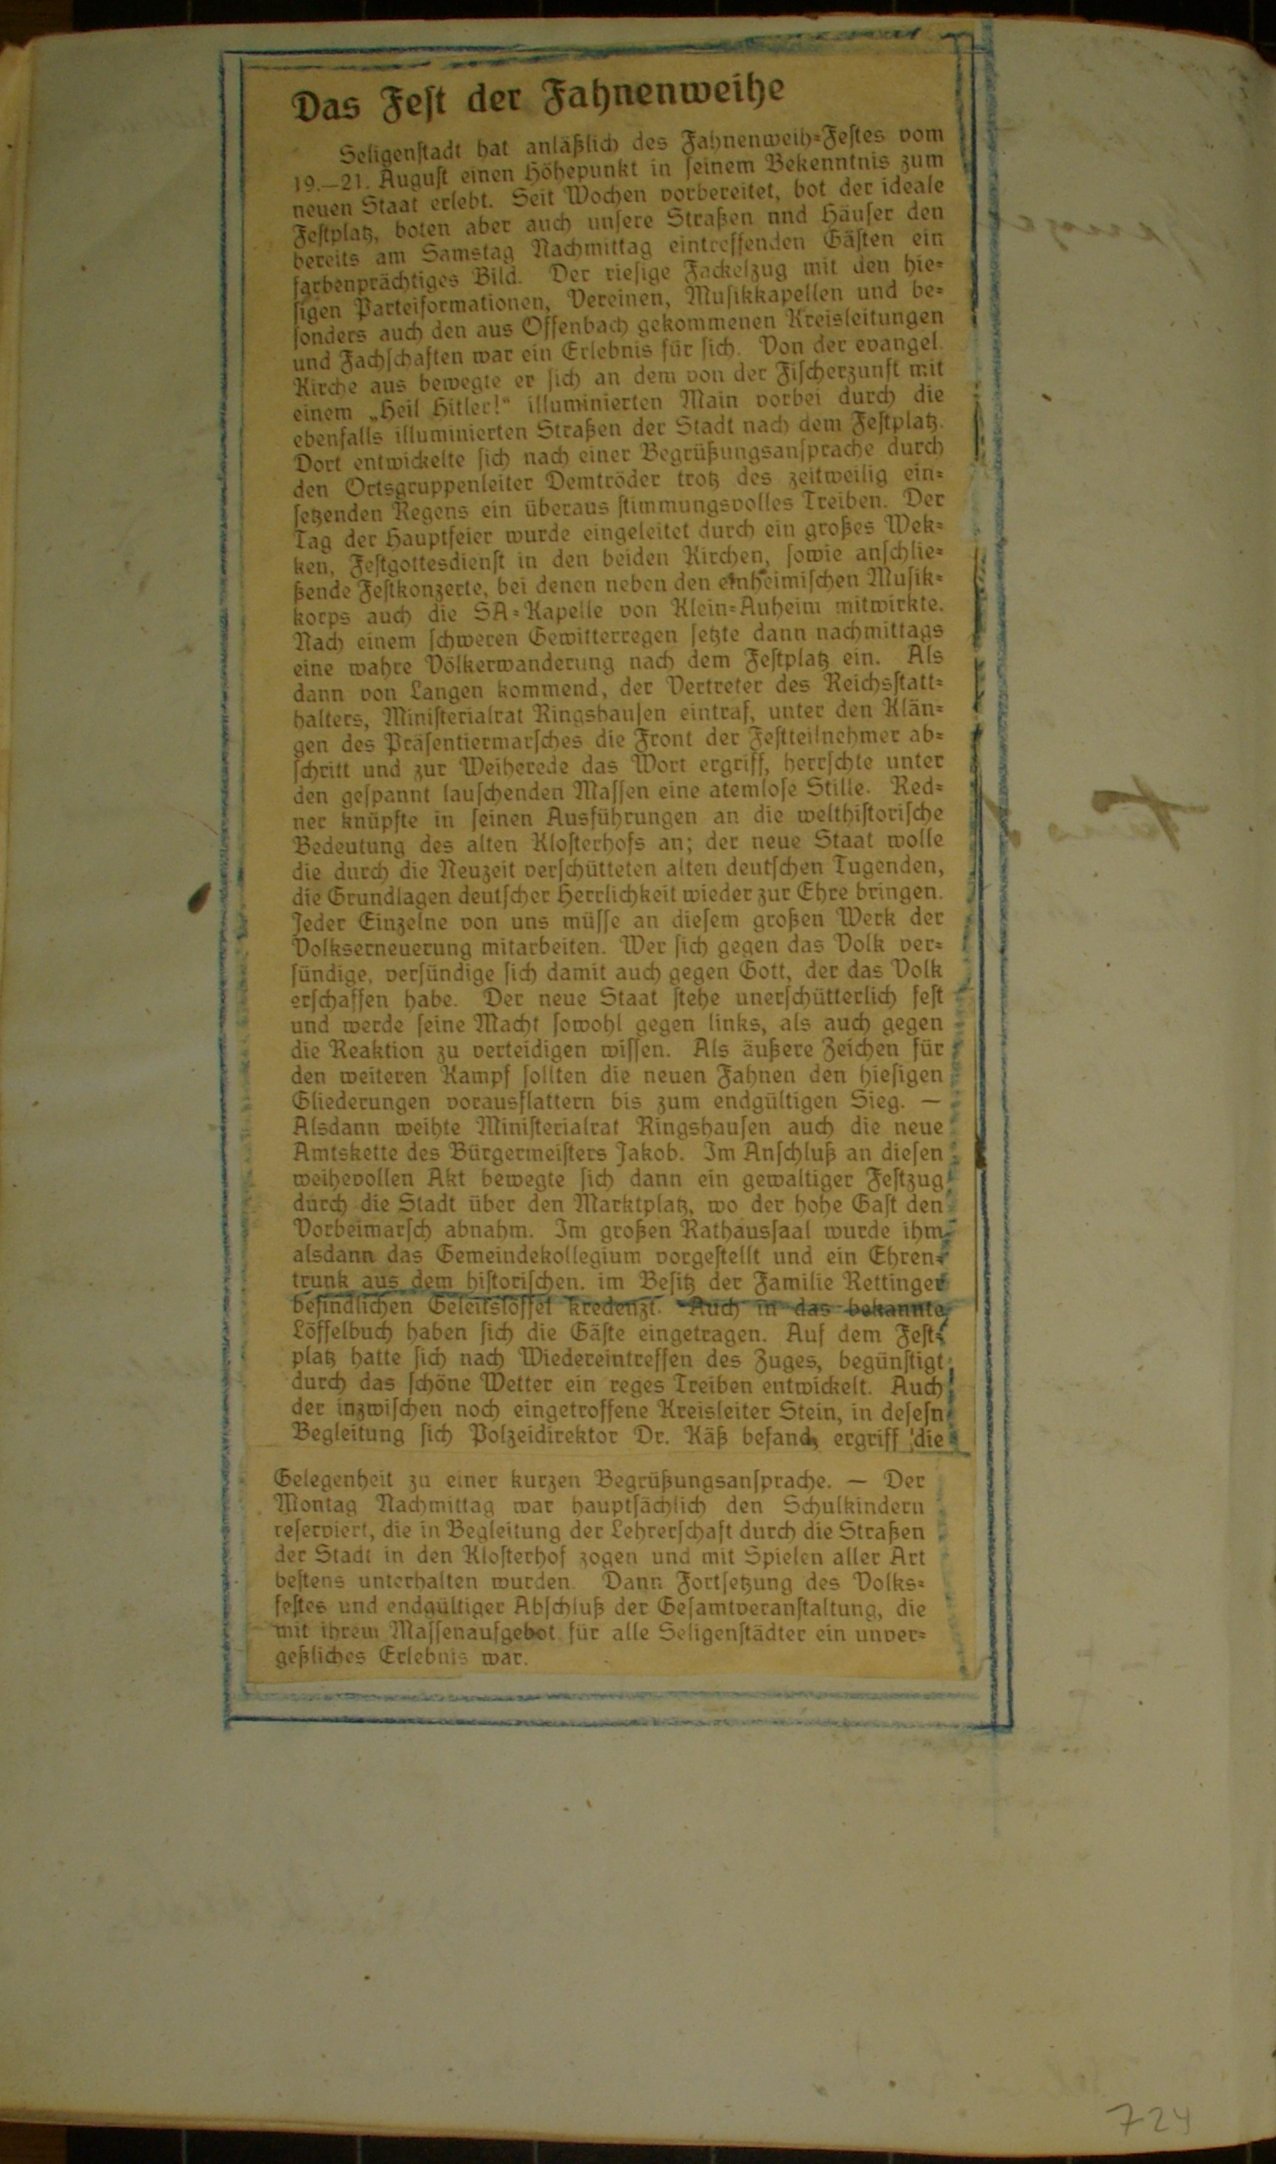 Das Fest der Fahnenweihe
Seligenstadt hat anläßlich des Fahnenweih-Festes vom
19.—21. August einen Höhepunkt in seinem Bekenntnis zum
neuen Staat erlebt. Seit Wochen vorbereitet, bot der ideale
Festplatz, boten aber auch unsere Straßen nnd Häuser den
bereits am Samstag Nachmittag eintreffenden Gästen ein
farbenprächtiges Bild. Der riesige Fackelzug mit den hie-
sigen Parteiformationen, Vereinen, Musikkapellen und be-
sonders auch den aus Offenbach gekommenen Kreisleitungen
und Fachschaften war ein Erlebnis für sich. Von der evangel.
Kirche aus bewegte er sich an dem von der Fischerzunft mit
einem „Heil Hitler!“ illuminierten Main vorbei durch die
ebenfalls illuminierten Straßen der Stadt nach dem Festplatz.
Dort entwickelte sich nach einer Begrüßungsansprache durch
den Ortsgruppenleiter Demtröder trotz des zeitweilig ein-
setzenden Regens ein überaus stimmungsvolles Treiben. Der
Tag der Hauptfeier wurde eingeleitet durch ein großes Wek-
ken, Festgottesdienst in den beiden Kirchen, sowie anschlie-
ßende Festkonzerte, bei denen neben den einheimischen Musik-
korps auch die SA-Kapelle von Klein-Auheim mitwirkte.
Nach einem schweren Gewitterregen setzte dann nachmittags
eine wahre Völkerwanderung nach dem Festplatz ein. Als
dann von Langen kommend, der Vertreter des Reichsstatt-
halters, Ministerialrat Ringshausen eintraf, unter den Klän-
gen des Präsentiermarsches die Front der Festteilnehmer ab-
schritt und zur Weiherede das Wort ergriff, herrschte unter
den gespannt lauschenden Massen eine atemlose Stille. Red-
ner knüpfte in seinen Ausführungen an die welthistorische
Bedeutung des alten Klosterhofs an; der neue Staat wolle
die durch die Neuzeit verschütteten alten deutschen Tugenden,
die Grundlagen deutscher Herrlichkeit wieder zur Ehre bringen.
Jeder Einzelne von uns müsse an diesem großen Werk der
Volkserneuerung mitarbeiten. Wer sich gegen das Volk ver-
sündige, versündige sich damit auch gegen Gott, der das Volk
erschaffen habe. Der neue Staat stehe unerschütterlich fest
und werde seine Macht sowohl gegen links, als auch gegen
die Reaktion zu verteidigen wissen. Als äußere Zeichen für
den weiteren Kampf sollten die neuen Fahnen den hiesigen
Gliederungen vorausflattern bis zum endgültigen Sieg. —
Alsdann weihte Ministerialrat Ringshausen auch die neue
Amtskette des Bürgermeisters Jakob. Im Anschluß an diesen
weihevollen Akt bewegte sich dann ein gewaltiger Festzug
durch die Stadt über den Marktplatz, wo der hohe Gast den
Vorbeimarsch abnahm. Im großen Rathaussaal wurde ihm
alsdann das Gemeindekollegium vorgestellt und ein Ehren-
trunk aus dem historischen. im Besitz der Familie Rettinger
befindlichen Geleitslöffel kredenzt. Auch in das bekannte
Löffelbuch haben sich die Gäste eingetragen. Auf dem Fest-
platz hatte sich nach Wiedereintreffen des Zuges, begünstigt
durch das schöne Wetter ein reges Treiben entwickelt. Auch
der inzwischen noch eingetroffene Kreisleiter Stein, in desesn
Begleitung sich Polzeidirektor Dr. Käß befand, ergriff die
Gelegenheit zu einer kurzen Begrüßungsansprache. — Der
Montag Nachmittag war hauptsächlich den Schulkindern
reserviert, die in Begleitung der Lehrerschaft durch die Straßen
der Stadt in den Klosterhof zogen und mit Spielen aller Art
bestens unterhalten wurden. Dann Fortsetzung des Volks-
festes und endgültiger Abschluß der Gesamtveranstaltung, die
mit ihrem Massenaufgebot für alle Seligenstädter ein unver-
geßliches Erlebnis war.
724